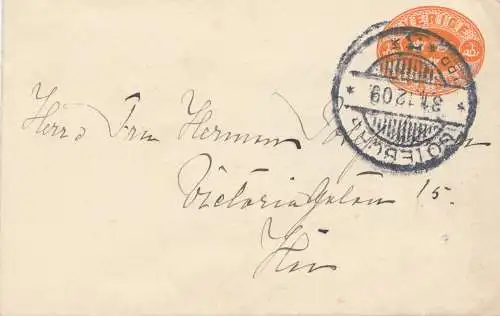 SVERIGE
GÖTEBORG
31.12.09
Herr o Fru Herman
Victoriagatan 15.
Hier